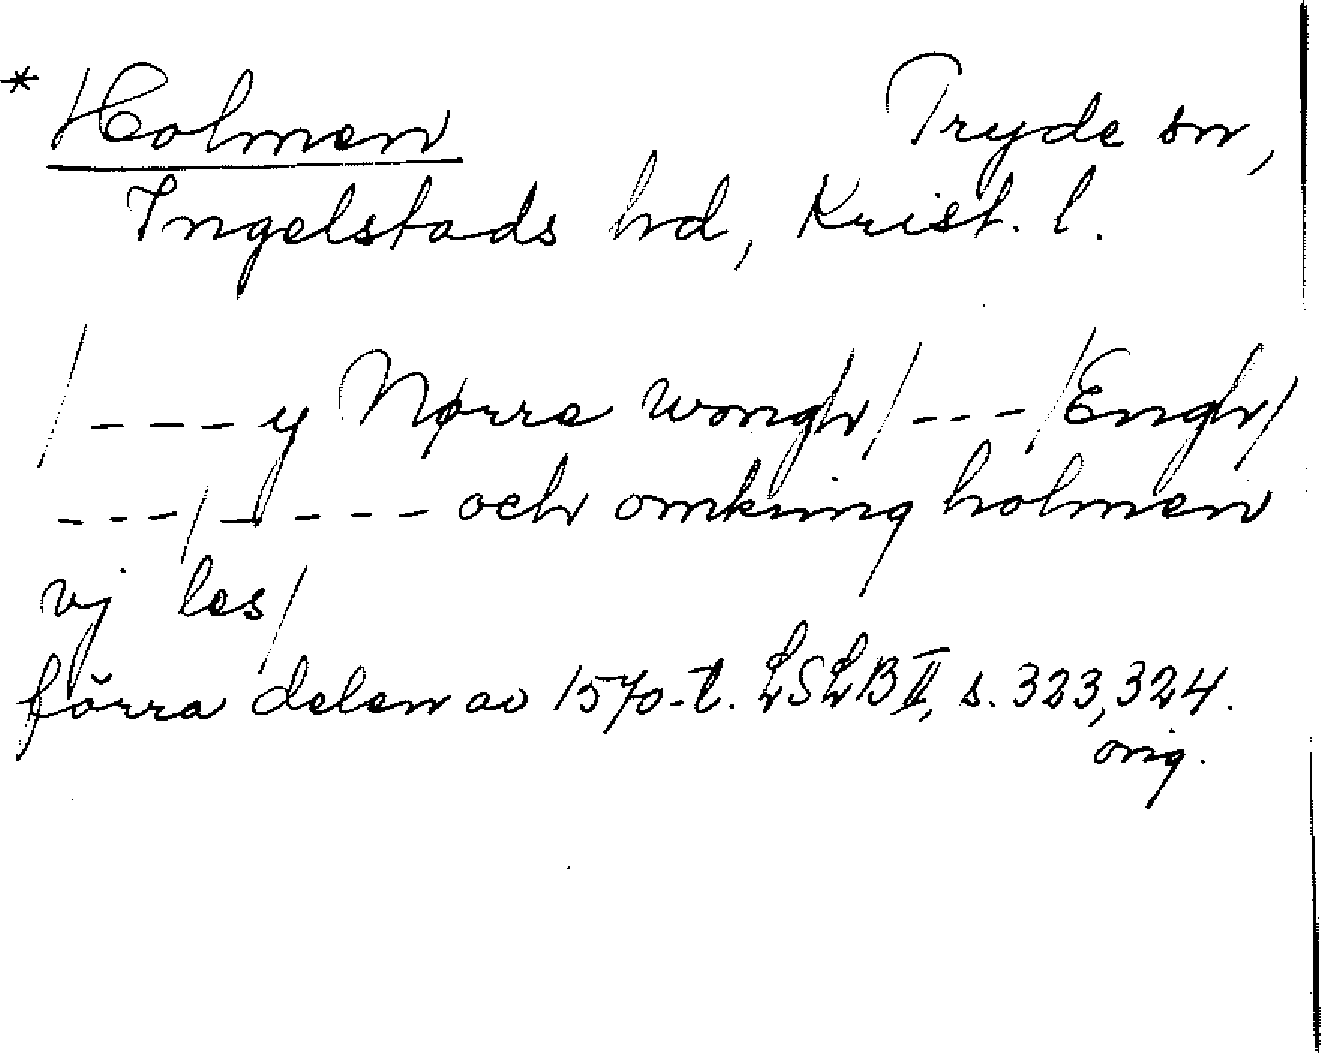 * Holmen Tryde sn,
Ingelstads hd, Krist. l.
/---y Nørre wongh/---/Engh/
---/----- och omkring holmen
vj les/
förra delen av 1570-t. LSLB II, s. 323, 324.
orig.